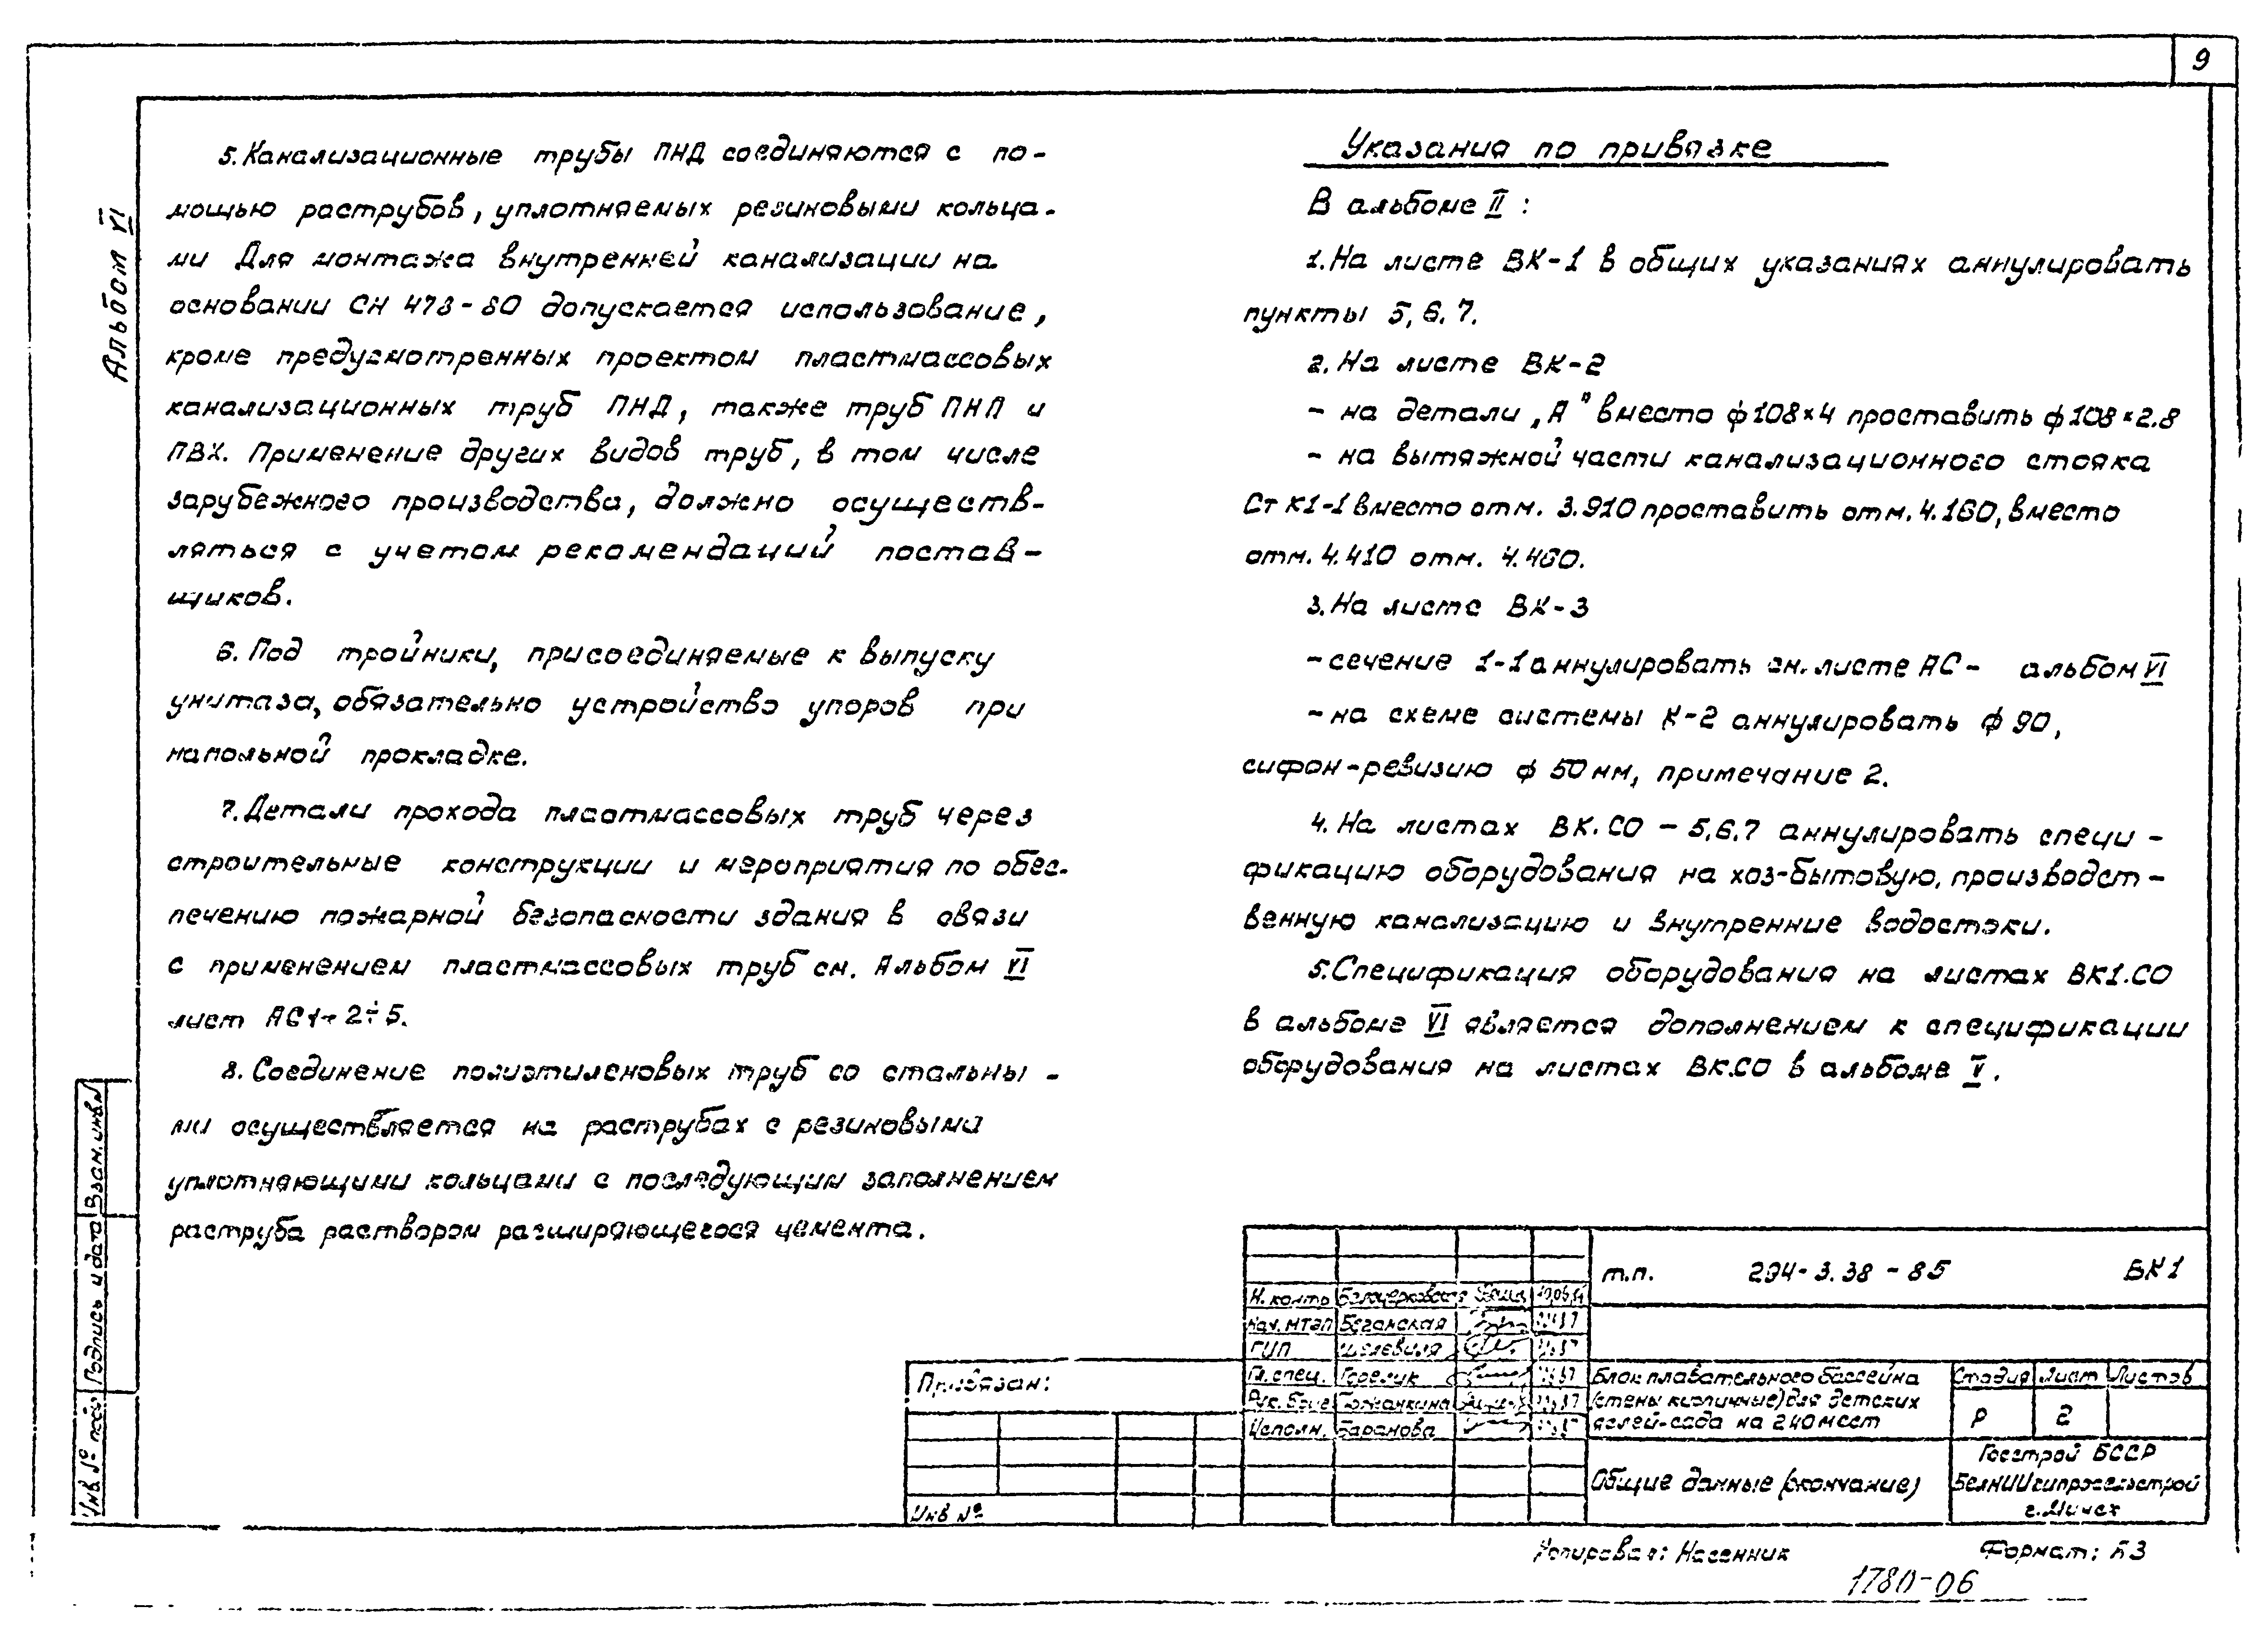 9
Альбом VI
5. Канализационные трубы ПНД соединяются с по-
мощью раструбов, уплотняемых резиновыми кольца-
ми Для монтажа внутренней канализации на
основании СН 478-80 допускается использование,
кроме предусмотренных проектом пластмассовых
канализационных труб ПНД, также труб ПНП и
ПВХ. Применение других видов труб, в том числе
зарубежного производства, должно осуществ-
ляться с учетом рекомендаций постав-
щиков.
6. Под тройники, присоединяемые к выпуску
унитаза, обязательно устройство упоров при
напольной прокладке.
7. Детали прохода пластмассовых труб через
строительные конструкции и мероприятия по обес-
печению пожарной безопасности здания в связи
с применением пластмассовых труб см. Альбом VI
лист АС1-2÷5.
8. Соединение полиэтиленовых труб со стальны-
ми осуществляется на раструбах с резиновыми
уплотняющими кольцами с последующим заполнением
раструба раствором расширяющегося цемента.
Указания по привязке
В альбоме II :
1. На листе ВК-1 в общих указаниях аннулировать
пункты 5, 6. 7.
2. На листе ВК-2
- на детали „А" вместо ф108×4 проставить ф108×2.8
- на вытяжной части канализационного стояка
Ст К1-1 вместо отм. 3.910 проставить отм. 4.160, вместо
отм. 4.410 отм. 4.460.
3. На листе ВК-3
- сечение 1-1 аннулировать см. листе АС- альбом VI
- на схеме системы К-2 аннулировать ф 90,
сифон-ревизию ф 50 мм, примечание 2.
4. На листах ВК.СО - 5,6,7 аннулировать специ-
фикацию оборудования на хоз-бытовую, производст-
венную канализацию и внутренние водостоки.
5. Спецификация оборудования на листах ВК1.СО
в альбоме VI является дополнением к спецификации
оборудования на листах ВК.СО в альбоме V.
Инв № подл Подпись и дата Взам. инв №
т.п. 294-3.38-85 ВК1
Н. контр Белоцерковская
Нач. МТЭП Беганская
ГИП
Гл. спец. Горелик
Рук. бриг Божанкина
Исполн. Баранова
Привязан:
Инв №
Блок плавательного бассейна
(стены кирпичные) для детских
яслей-сада на 240 мест
Стадия Лист Листов
Р 2
Общие данные (окончание)
Госстрой БССР
БелНИИгипросельстрой
г. Минск
Копировал: Насенник Формат: А3
1780-06